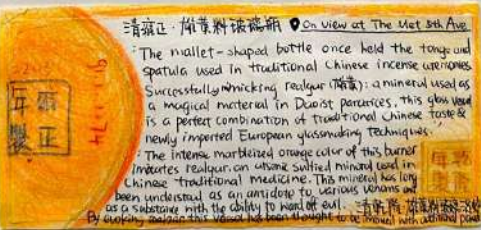 清雍正·雄黃料玻璃瓶 On view at The Met 5th Ave
"The mallet-shaped bottle once held the tongs and
spatula used in traditional Chinese incense ceremonies.
Successfully mimicking realgar (雄黃): a mineral used as
a magical material in Daoist pararices, this glass vessel
is a perfect combination of traditional Chinese taste &
newly imported European glassmaking techniques."
"The intense marbleized orange color of this burner
imitates realgar, an arsenic sulfied mineral used in
Chinese traditional medicine. This mineral has long
been understood as an antidote to various venoms and
as a substance with the ability to ward off evil. 清乾隆
By evoking realgar this vessel has been thought to be imbued with additional
雍正
年製
乾隆
年製